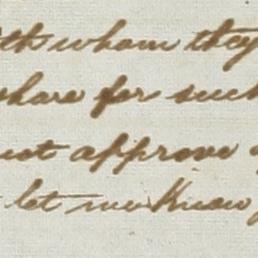 with whom they
share for such
not approve
let me Know